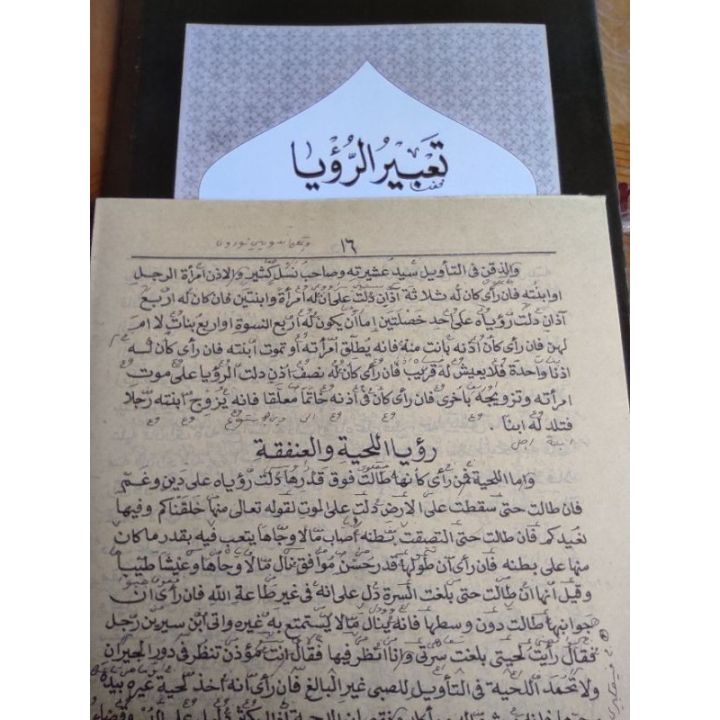 تعبير الرؤيا
١٦
والذقن في التأويل سيد عشيرته وصاحب نسل كثير والاذن امرأة الرجل
او ابنته فان رأى كان له ثلاثة آذان دلت على أن له امرأة وابنتين فان كان له أربع
آذان دلت رؤياه على أحد خصلتين اما أن يكون له أربع النسوة او اربع بنات لا ام
لهن فان رأى كان أذنه بانت منه فانه يطلق امرأته أو تموت ابنته فان رأى كان له
اذنا واحدة فلا يعيش له قريب فان رأى كان له نصف أذن دلت الرؤيا على موت
امرأته وتزويجه بأخرى فان رأى كان في أذنه خاتما معلقا فانه يزوج ابنته رجلا
فتلد له ابنا
رؤيا اللحية والعنفقة
واما اللحية فمن رأى كأنها طالت فوق قدرها دلت رؤياه على دين وغم
فان طالت حتى سقطت على الارض دلت على الموت لقوله تعالى منها خلقناكم وفيها
نعيدكم فان طالت حتى التصقت بطنه أصاب مالا وجاها يتعب فيه بقدر ما كان
منها على بطنه فان رأى آن طولها قدر حسن موافق نال مالا وجاها وعيشا طيبا
وقيل أنها ان طالت حتى بلغت السرة دل على انه في غير طاعة الله فان رأى أن
جوانبها طالت دون وسطها فانه ينال مالا يستمتع به غيره واتى ابن سيرين رجل
فقال رأيت لحيتى بلغت سرتى وانا أنظر فيها فقال أنت مؤذن تنظر في دور الجيران
ولا تحمد اللحية في التأويل للصبى غير البالغ فان رأى انه أخذ لحية غيره بيده